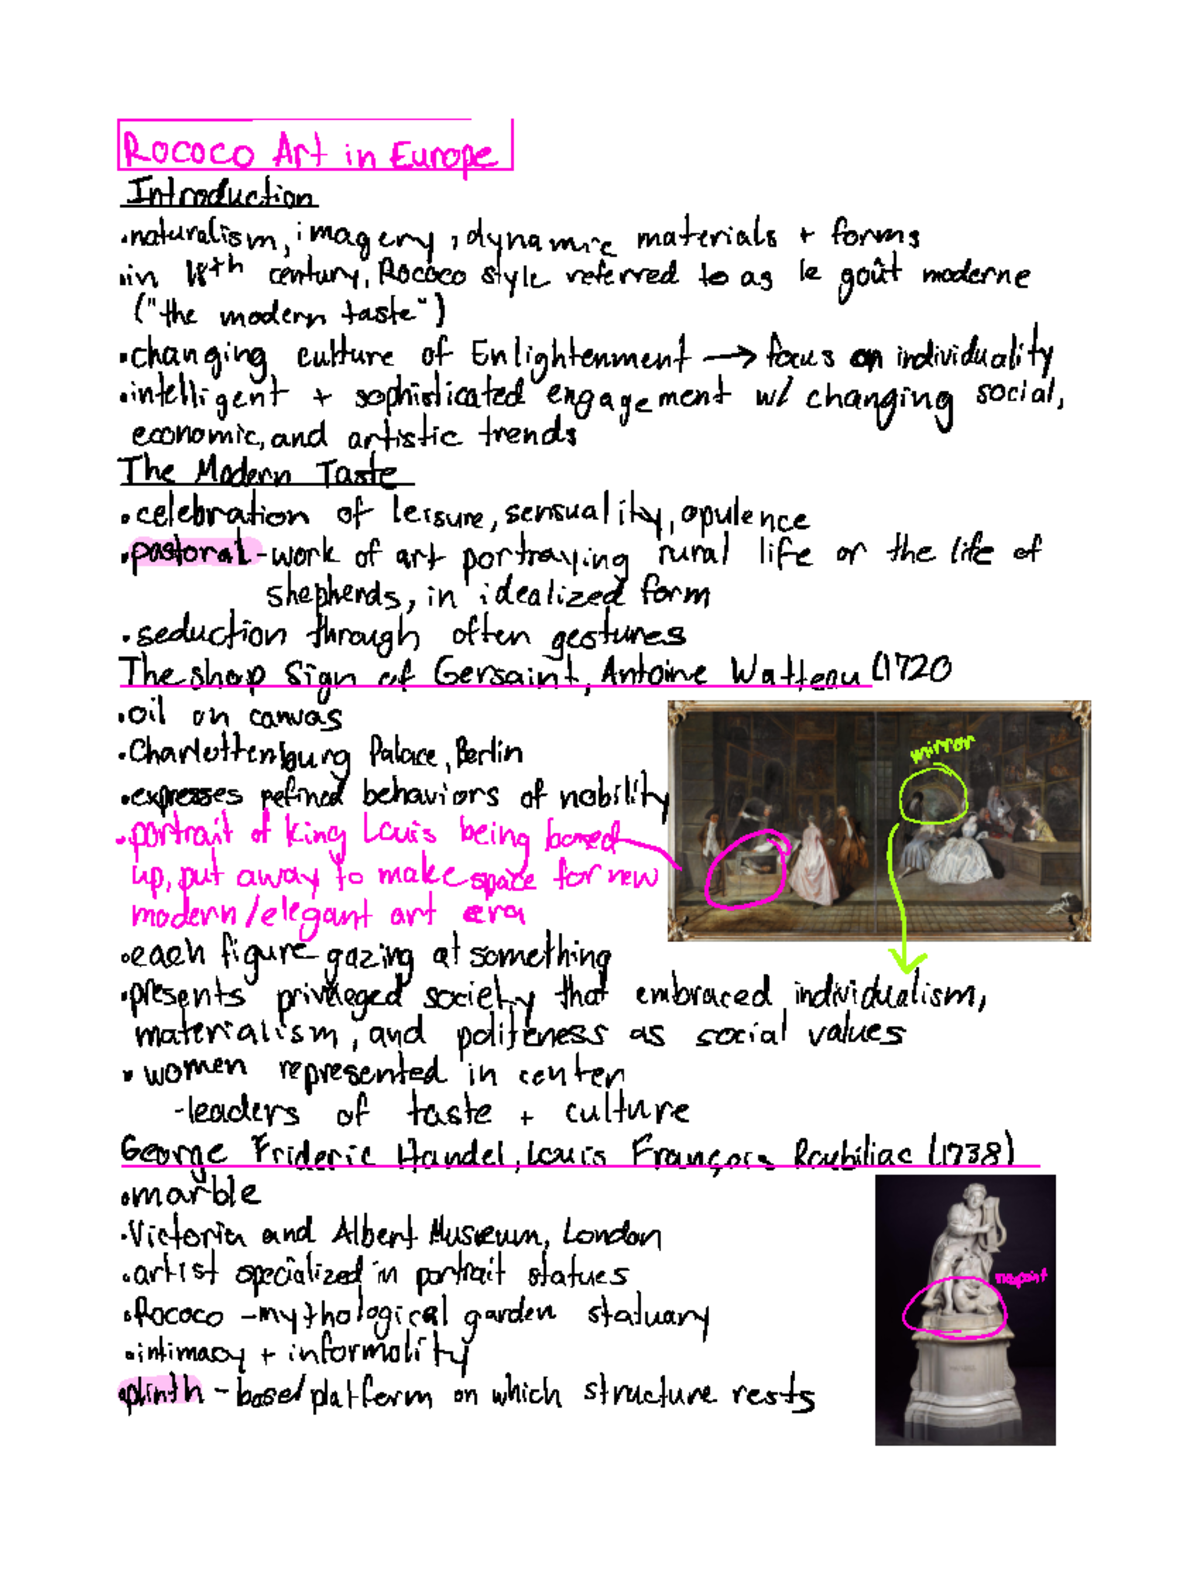 Rococo Art in Europe
Introduction
•naturalism, imagery, dynamic materials + forms
•in 18th century, Rococo style referred to as le goût moderne
("the modern taste")
•changing culture of Enlightenment → focus on individuality
•intelligent + sophisticated engagement w/ changing social,
economic, and artistic trends
The Modern Taste
•celebration of leisure, sensuality, opulence
•pastoral - work of art portraying rural life or the life of
shepherds, in idealized form
•seduction through often gestures
The shop Sign of Gersaint, Antoine Watteau (1720
•oil on canvas
•Charlottenburg Palace, Berlin
•expresses refined behaviors of nobility
mirror
•portrait of king Louis being boxed
up, put away to make space for new
modern/elegant art era
•each figure gazing at something
•presents privileged society that embraced individualism,
materialism, and politeness as social values
•women represented in center
-leaders of taste + culture
George Frideric Handel, Louis François Roubiliac (1738)
•marble
•Victoria and Albert Museum, London
•artist specialized in portrait statues
•Rococo - mythological garden statuary
•intimacy + informality
•plinth - base/platform on which structure rests